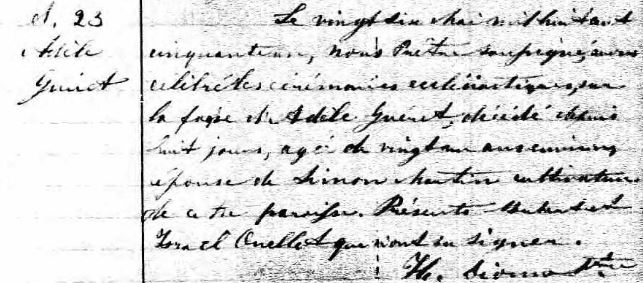 S. 23
Adèle
Guéret
Le vingt six Mai mil huit cent
cinquante un, nous Prêtre soussigné, avons
célébré les cérémonies ecclésiastiques, sur
la fosse d'Adèle Guéret, décédé depuis
huit jours, agée de vingt un ans environ,
épouse de Simon Martin cultivateur
de cette paroisse. Présents Hubert et
Israel Ouellet que n'ont su signer.
Ptre